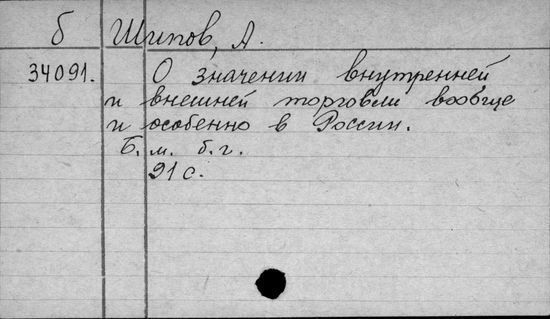 б Шипов, А.
34091. О значении внутренней
и внешней торговли вообще
и особенно в России.
Б. м. б. г.
91 с.